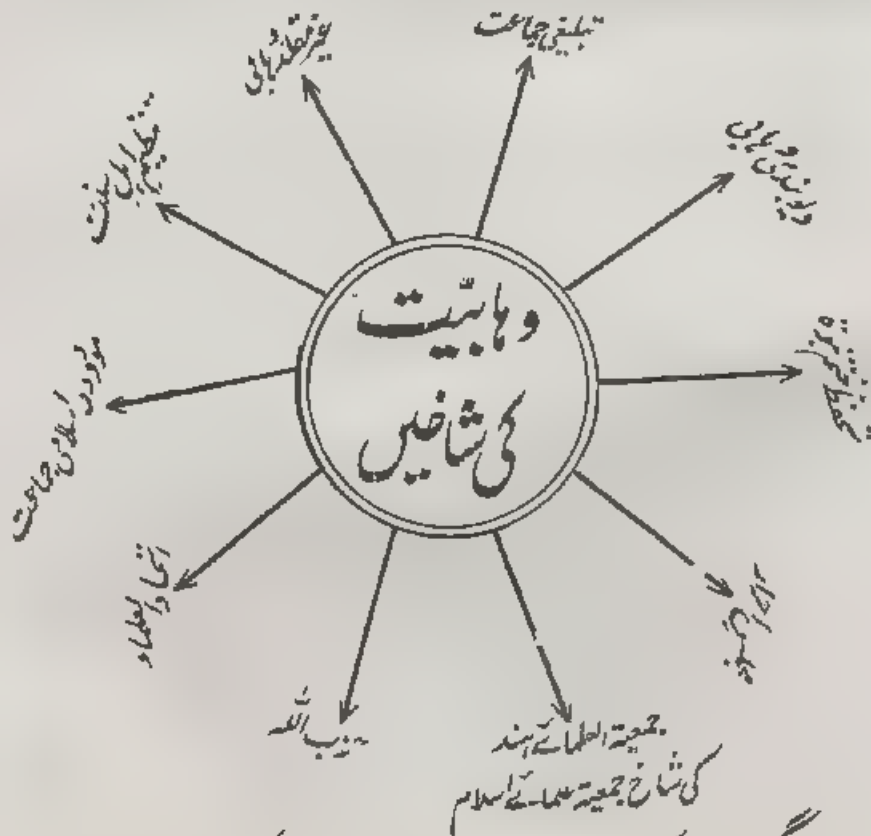 وہابیّت
کی شاخیں
تبلیغی جماعت
دیوبندی وہابی
جمعیۃ العلمائے ہند
کی شاخ جمعیۃ علمائے اسلام
حزب اللہ
اتحاد العلماء
مودودی اسلامی جماعت
تنظیم اہل سنت
غیر مقلد وہابی